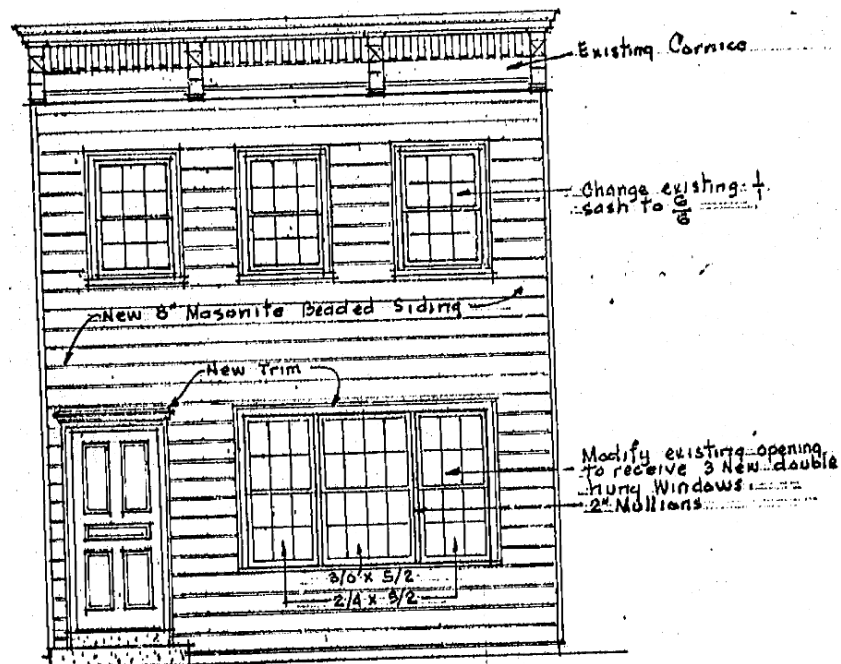 Existing Cornice
Change existing 1/1
sash to 6/6
New 8" Masonite Beaded Siding
New Trim
Modify existing opening
to receive 3 New double
hung Windows
2" Mullions
3/0 x 5/2
2/4 x 5/2